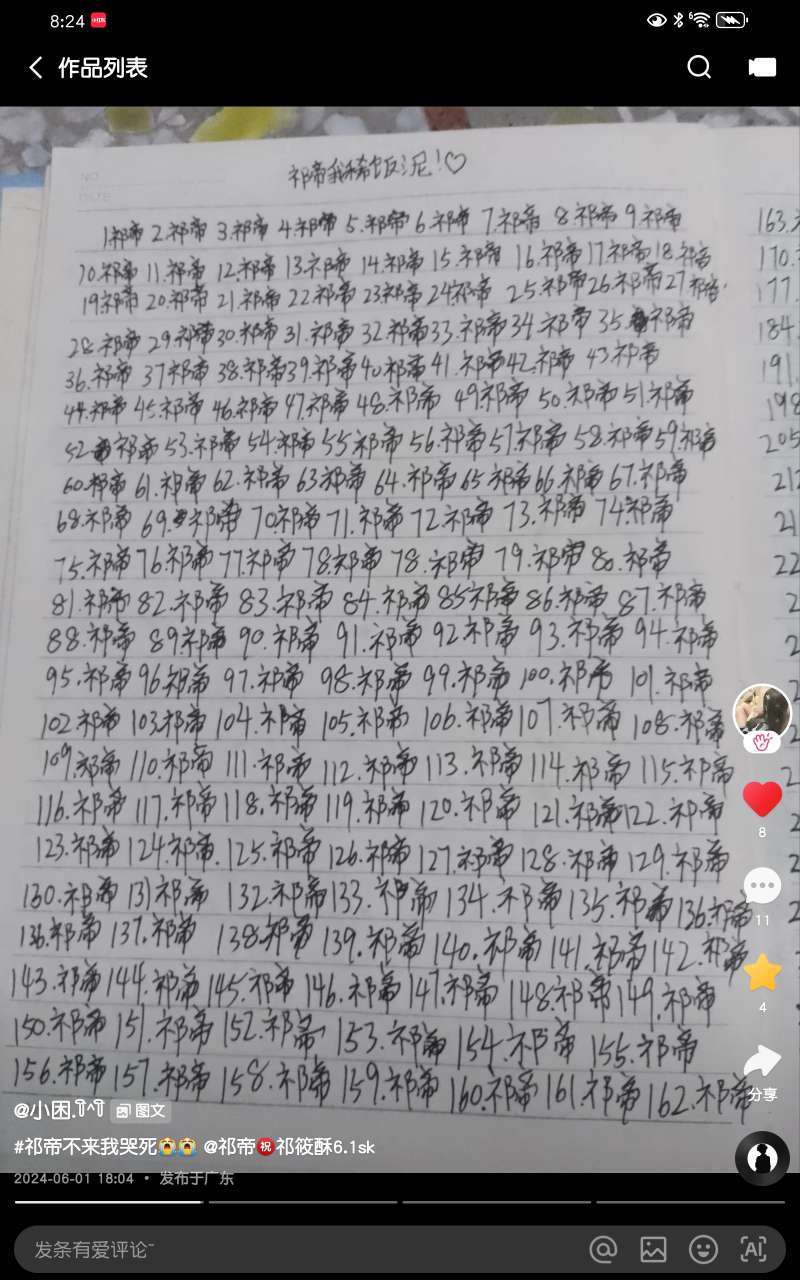 8:24
作品列表
祁帝我稀饭泥!♡
1.祁帝 2.祁帝 3.祁帝 4.祁帝 5.祁帝 6.祁帝 7.祁帝 8.祁帝 9.祁帝
10.祁帝 11.祁帝 12.祁帝 13.祁帝 14.祁帝 15.祁帝 16.祁帝 17.祁帝 18.祁帝
19.祁帝 20.祁帝 21.祁帝 22.祁帝 23.祁帝 24.祁帝 25.祁帝 26.祁帝 27.祁帝
28.祁帝 29.祁帝 30.祁帝 31.祁帝 32.祁帝 33.祁帝 34.祁帝 35.祁帝
36.祁帝 37.祁帝 38.祁帝 39.祁帝 40.祁帝 41.祁帝 42.祁帝 43.祁帝
44.祁帝 45.祁帝 46.祁帝 47.祁帝 48.祁帝 49.祁帝 50.祁帝 51.祁帝
52.祁帝 53.祁帝 54.祁帝 55.祁帝 56.祁帝 57.祁帝 58.祁帝 59.祁帝
60.祁帝 61.祁帝 62.祁帝 63.祁帝 64.祁帝 65.祁帝 66.祁帝 67.祁帝
68.祁帝 69.祁帝 70.祁帝 71.祁帝 72.祁帝 73.祁帝 74.祁帝
75.祁帝 76.祁帝 77.祁帝 78.祁帝 78.祁帝 79.祁帝 80.祁帝
81.祁帝 82.祁帝 83.祁帝 84.祁帝 85.祁帝 86.祁帝 87.祁帝
88.祁帝 89.祁帝 90.祁帝 91.祁帝 92.祁帝 93.祁帝 94.祁帝
95.祁帝 96.祁帝 97.祁帝 98.祁帝 99.祁帝 100.祁帝 101.祁帝
102.祁帝 103.祁帝 104.祁帝 105.祁帝 106.祁帝 107.祁帝 108.祁帝
109.祁帝 110.祁帝 111.祁帝 112.祁帝 113.祁帝 114.祁帝 115.祁帝
116.祁帝 117.祁帝 118.祁帝 119.祁帝 120.祁帝 121.祁帝 122.祁帝
123.祁帝 124.祁帝 125.祁帝 126.祁帝 127.祁帝 128.祁帝 129.祁帝
130.祁帝 131.祁帝 132.祁帝 133.祁帝 134.祁帝 135.祁帝 136.祁帝
136.祁帝 137.祁帝 138.祁帝 139.祁帝 140.祁帝 141.祁帝 142.祁帝
143.祁帝 144.祁帝 145.祁帝 146.祁帝 147.祁帝 148.祁帝 149.祁帝
150.祁帝 151.祁帝 152.祁帝 153.祁帝 154.祁帝 155.祁帝
156.祁帝 157.祁帝 158.祁帝 159.祁帝 160.祁帝 161.祁帝 162.祁帝
163.
170.
177.
184.
191.
198
205
8
11
4
分享
@小困.T^T 图文
#祁帝不来我哭死😭😭 @祁帝㊗️祁筱酥6.1sk
2024-06-01 18:04 · 发布于广东
发条有爱评论~